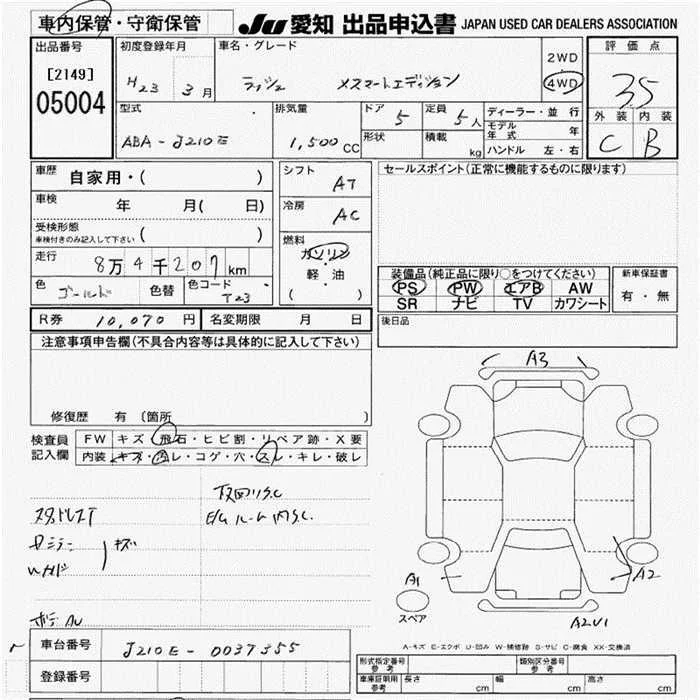 車内保管・守衛保管
JU 愛知 出品申込書 JAPAN USED CAR DEALERS ASSOCIATION
出品番号
[2149]
05004
初度登録年月
H23 3月
車名・グレード
ラッシュ
2WD
4WD
評価点
3.5
外装 内装
C B
型式
ABA-J210E
排気量
1,500 CC
ドア 5
定員 5人
形状
積載 kg
ディーラー・並行
モデル年式 年
ハンドル 左・右
車歴
自家用・( )
車検
年 月( 日)
受検形態
車検付きのみ記入して下さい ( )
走行
8万4千207km
色
ゴールド
色替
色コード
T23
シフト
AT
冷房
AC
燃料
ガソリン
軽・油
( )
セールスポイント(正常に機能するものに限ります)
装備品(純正品に限り○をつけてください)
PS PW エアB AW
SR ナビ TV カワシート
新車保証書
有・無
R券 10,070 円
名変期限 月 日
後日品
注意事項申告欄(不具合内容等は具体的に記入して下さい)
修復歴 有(箇所 )
検査員記入欄
FW キズ・飛石・ヒビ割・リペア跡・X要
内装 キズ・汚レ・コゲ・穴・スレ・キレ・破レ
スタッドレスT
キズ
A3
A1
A2
A2U1
スペア
A-キズ E-エクボ U-凹み W-補修跡 S-サビ C-腐食 XX-交換済
車台番号 J210E-0037355
登録番号
形式指定番号 参考
類別区分番号 参考
車庫証明用 参考 長さ cm 幅 cm 高さ cm